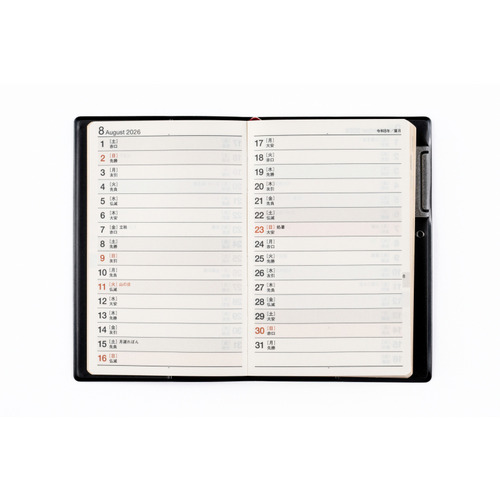 8 August 2026
1 [土] 赤口
2 [日] 先勝
3 [月] 友引
4 [火] 先負
5 [水] 仏滅
6 [木] 大安
7 [金] 立秋 赤口
8 [土] 先勝
9 [日] 友引
10 [月] 先負
11 [火] 山の日 仏滅
12 [水] 大安
13 [木] 先勝
14 [金] 友引
15 [土] 月遅れぼん 先負
16 [日] 仏滅
令和8年/葉月
17 [月] 大安
18 [火] 赤口
19 [水] 先勝
20 [木] 友引
21 [金] 先負
22 [土] 仏滅
23 [日] 処暑 大安
24 [月] 赤口
25 [火] 先勝
26 [水] 友引
27 [木] 先負
28 [金] 仏滅
29 [土] 大安
30 [日] 赤口
31 [月] 先勝